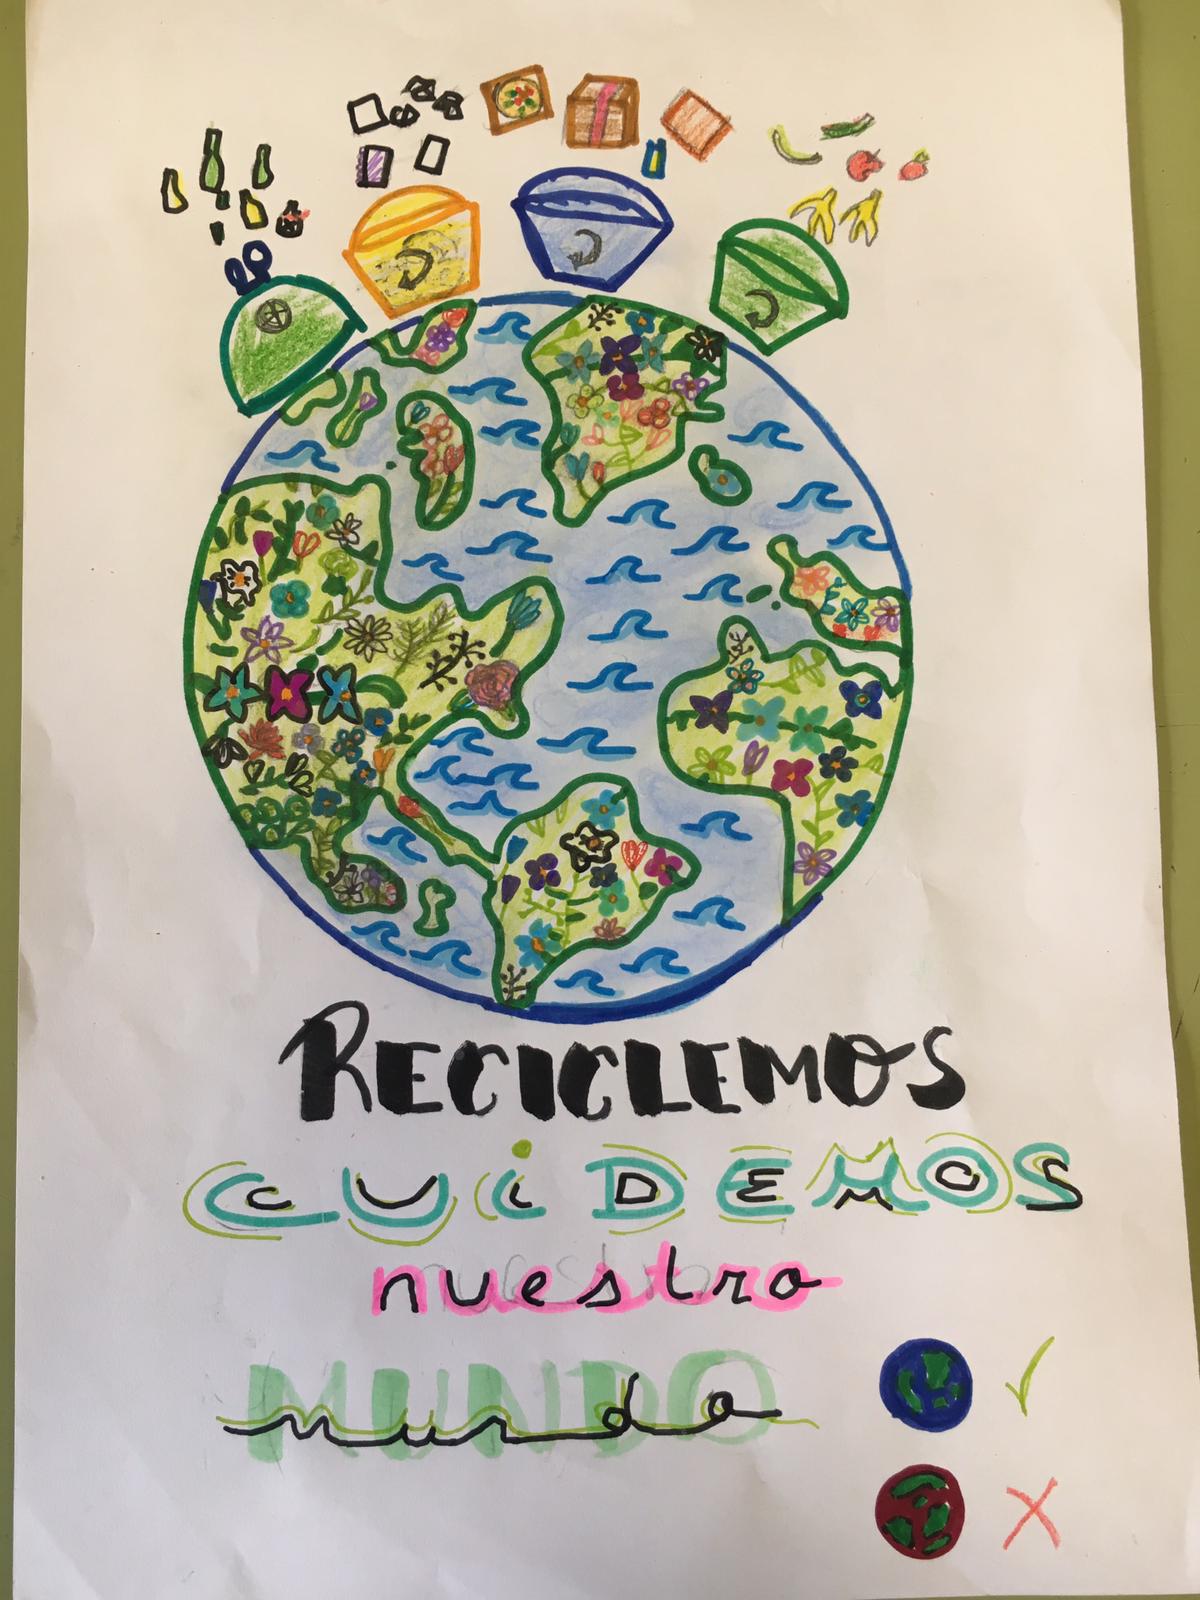 RECICLEMOS
CUiDEMOS
nuestro
MUNDO
mundo